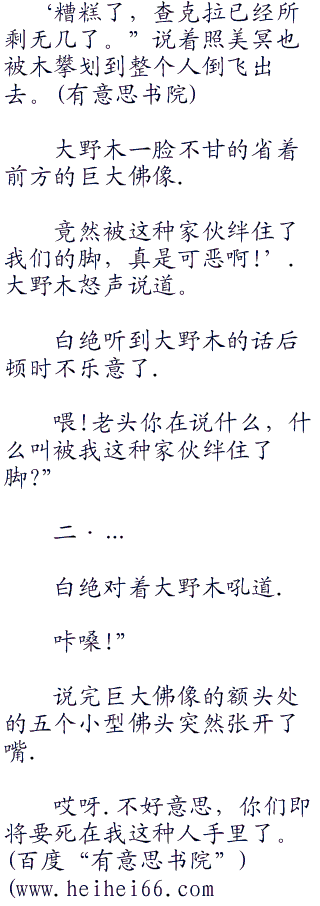 ‘糟糕了，查克拉已经所
剩无几了。”说着照美冥也
被木攀划到整个人倒飞出
去。(有意思书院)
大野木一脸不甘的省着
前方的巨大佛像.
竟然被这种家伙绊住了
我们的脚，真是可恶啊!’.
大野木怒声说道。
白绝听到大野木的话后
顿时不乐意了.
喂!老头你在说什么，什
么叫被我这种家伙绊住了
脚?”
二·...
白绝对着大野木吼道.
咔嗓!”
说完巨大佛像的额头处
的五个小型佛头突然张开了
嘴.
哎呀.不好意思，你们即
将要死在我这种人手里了。
(百度“有意思书院”)
(www.heihei66.com